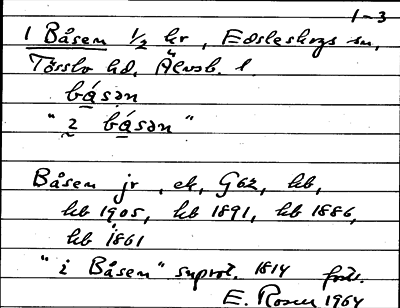 1-3
1 Båsen 1/2 hr, Edsleskogs sn,
Tössbo hd, Älvsb. l.
bå̀sən
"2 bå̀sən"
Båsen jr, ek, GK2, hb,
hb 1905, hb 1891, hb 1886,
hb 1861
"i Båsen" suprot. 1814
E. Rosen 1964